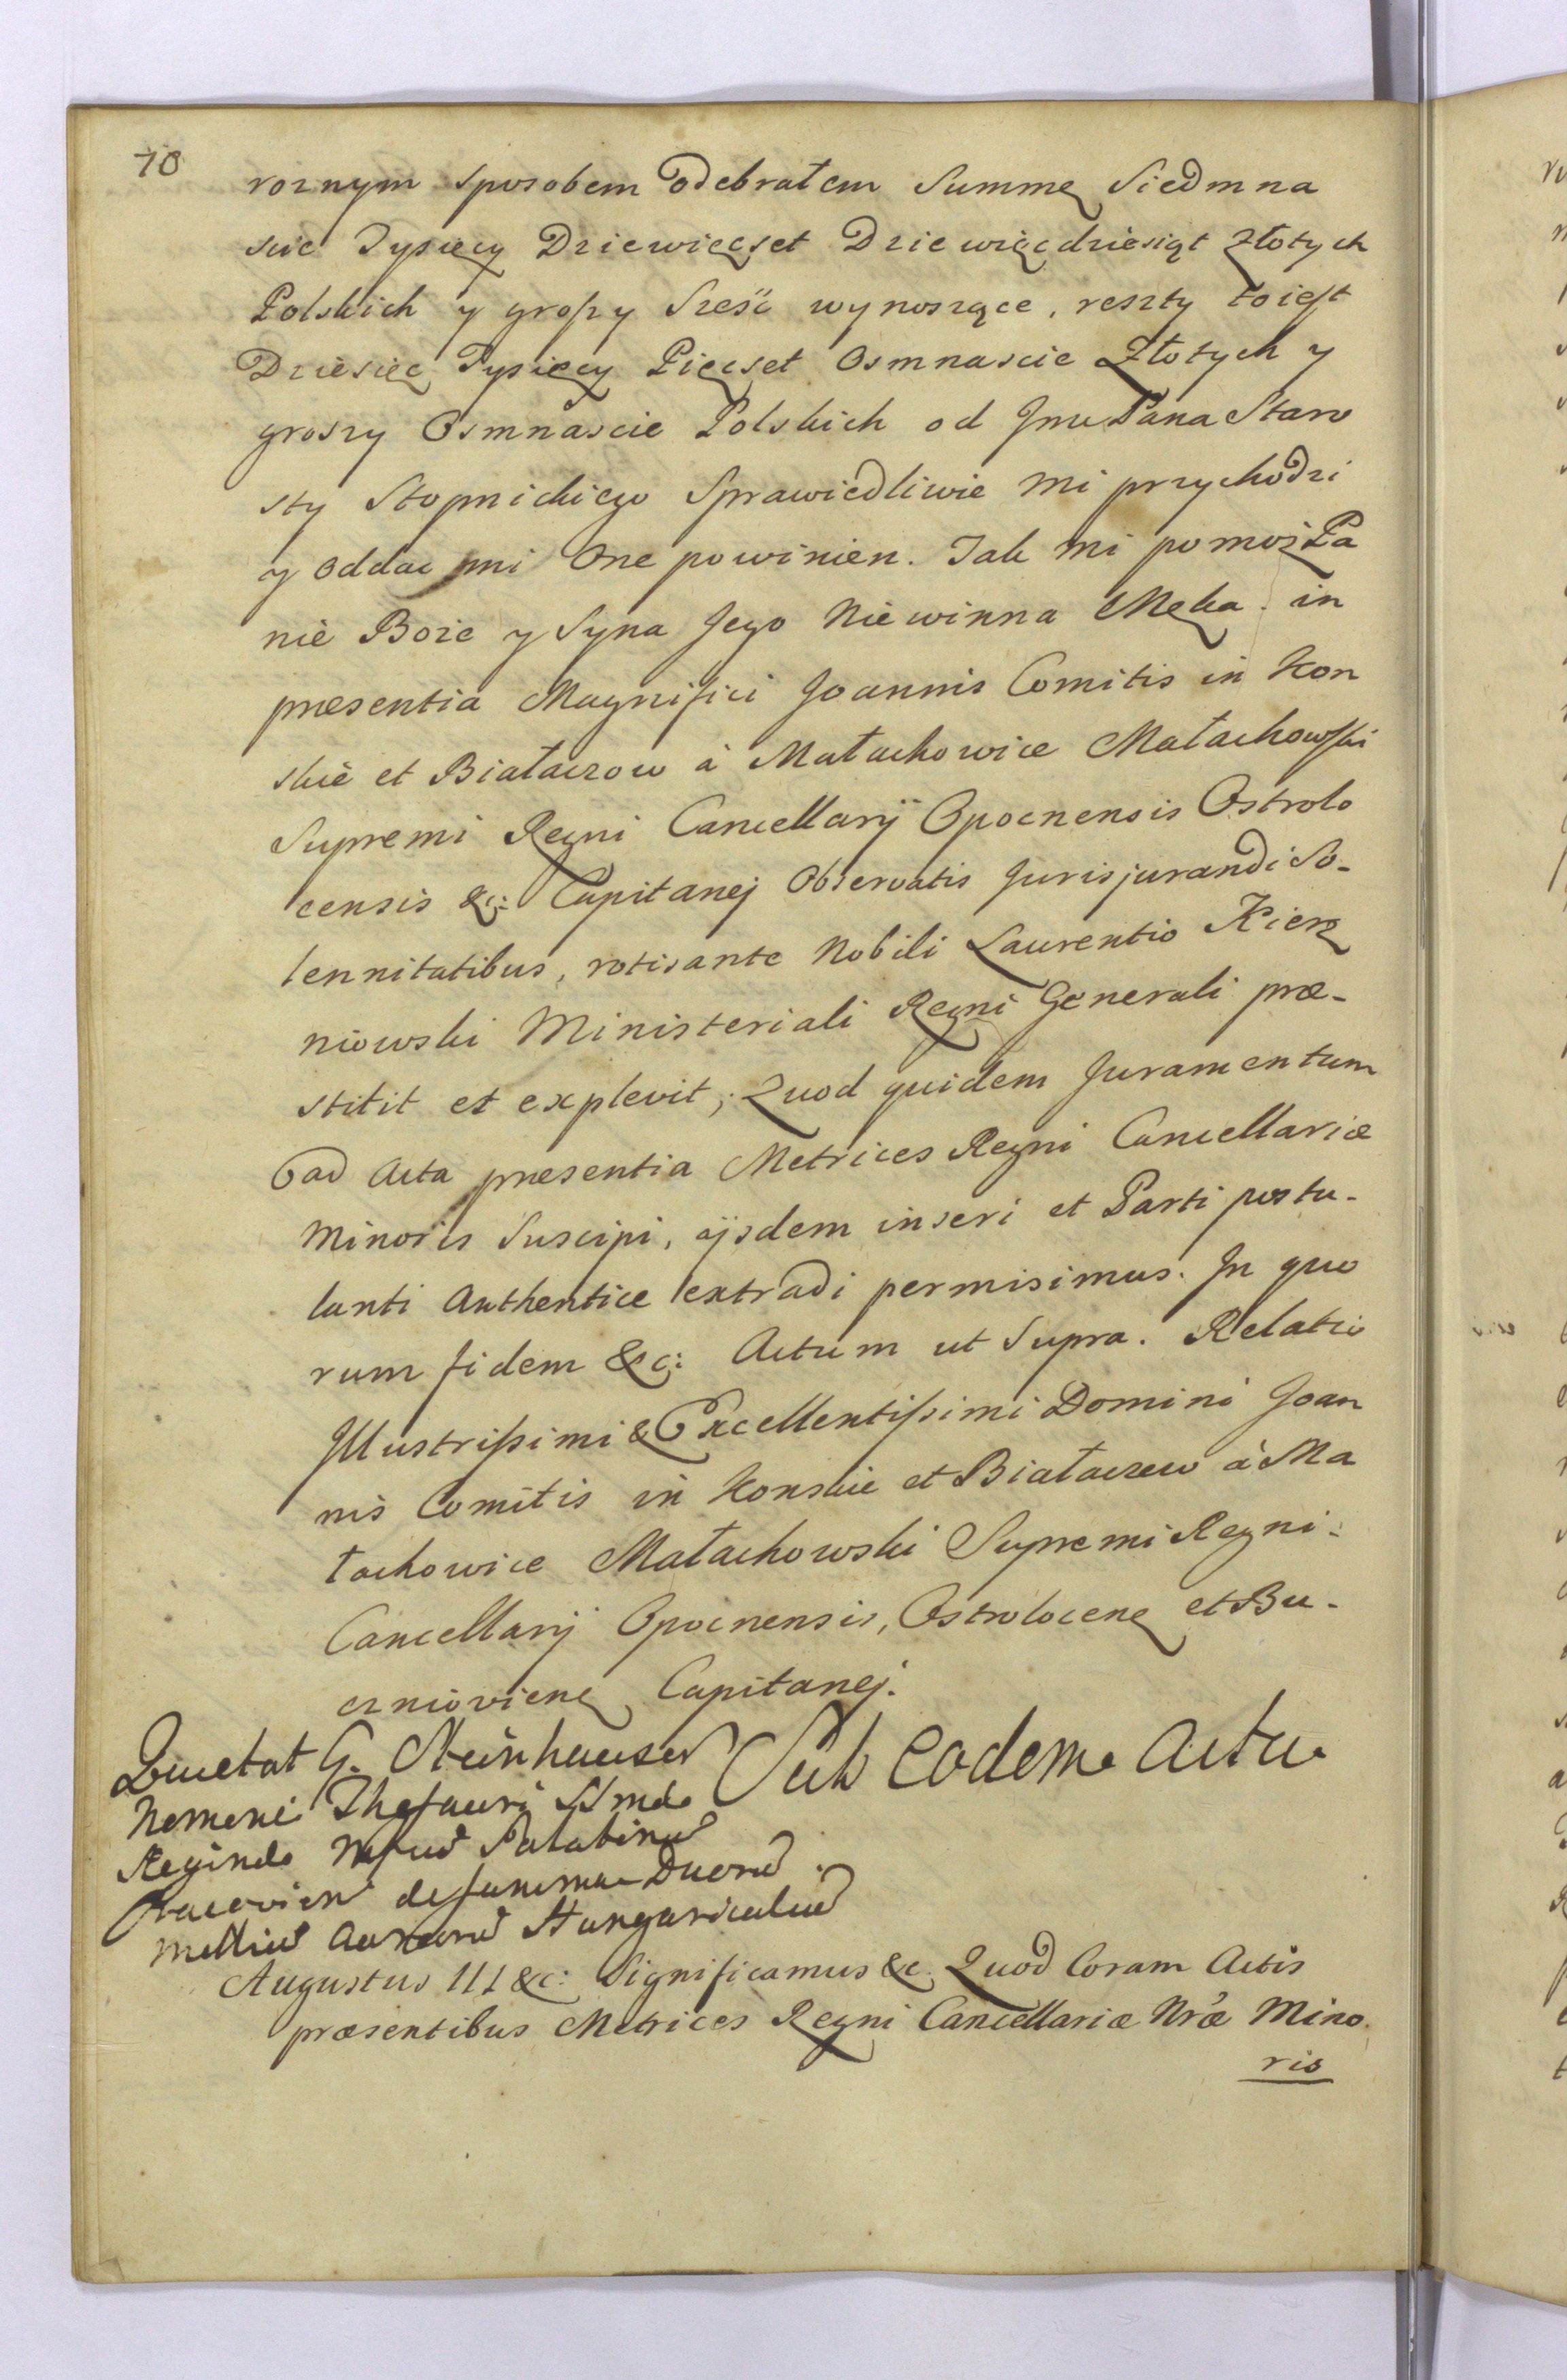 10
roznym sposobem odebrałem Summę Siedmna
scie Tysięcy Dziewięcset Dziewięcdziesiąt złotych
Polskich y groszy Sześc wynoszące, reszty to iest
Dziesięc Tysięcy Pięcset Osmnascie Złotych y
groszy Osmnascie Polskich od Jmu Pana Staro
sty Stopnickiego Sprawiedliwie mi przychodzi
y oddac mi One powinien. Tak mi pomoz Pa
nie Boze y Syna Jego Niewinna Męka. in
præsentia Magnifici Joannis Comitis in Kon
skie et Białaczow à Małachowice Małachowski
Supremi Regni Cancellarij Opocnensis Ostrolo
censis &c: Capitanej Observatis Jurisjurandi So-
lennitatibus, rotisante Nobili Laurentio Kierz
niowski Ministeriali Regni Generali præ-
stitit et explevit; Quod quidem Juramentum
ad Acta præsentia Metrices Regni Cancellariæ
Minoris Suscipi, ijsdem inseri et Parti postu-
lanti Authentice extradi permisimus. In quo
rum fidem &c: Actum ut Supra. Relatio
Illustrissimi & Excellentissimi Domini Joan
nis Comitis in Konskie et Białaczew à Ma
łachowice Małachowski Supremi Regni
Cancellarij Opocnensis, Ostrolocenę et Bu-
czniovienę Capitanej.
Quietat G. Steinhauser
Nomene Thesauri
Sub eodem Actu
Palatinũ
Cracovien de summa Duorũ
Millium Aureorũ Hungaricaliũ
Augustus III &c: Significamus &c. Quod Coram Actis
præsentibus Metrices Regni Cancellariæ Nræ Mino
ris